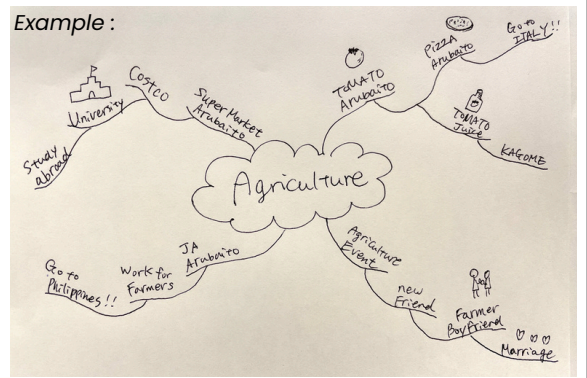 Example :
Agriculture
Super Market
Arubaito
Costco
University
Study
abroad
TOMATO
Arubaito
PIZZA
Arubaito
Go to
ITALY!!
TOMATO
Juice
KAGOME
JA
Arubaito
Work for
Farmers
Go to
Philippines!!
Agriculture
Event
new
Friend
Farmer
Boyfriend
Marriage